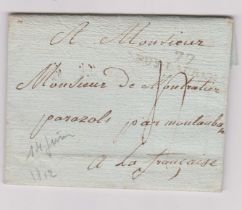 A Monsieur
77
Monsieur de Montratier
parazols par montauban
a La française
14 juin
1812